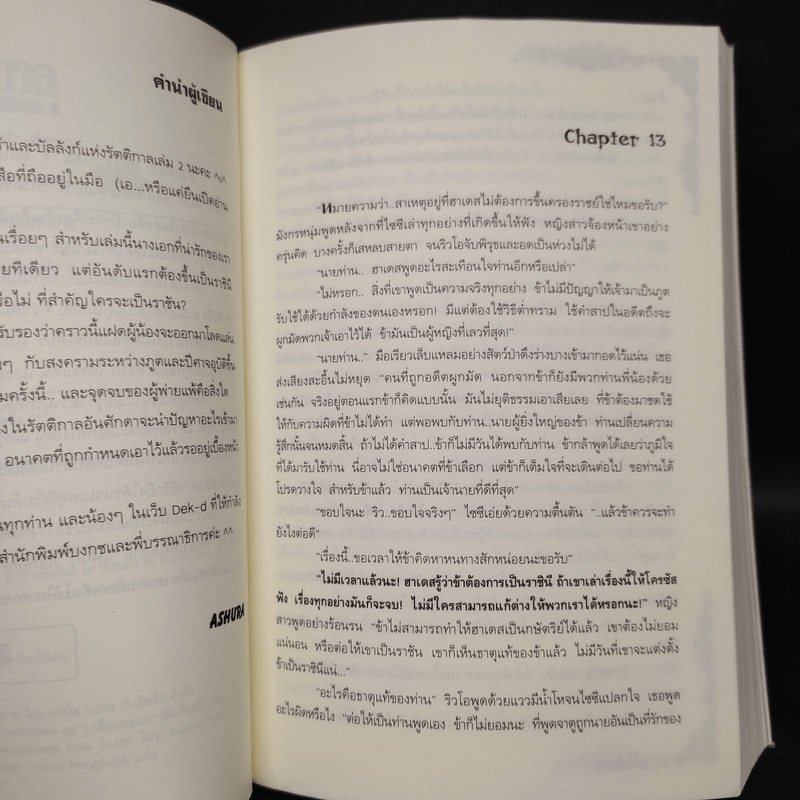 คำนำผู้เขียน
และบัลลังก์แห่งรัตติกาลเล่ม 2 นะคะ ^๐^
สือที่ถืออยู่ในมือ (เอ...หรือแค่ยืนเปิดอ่าน
นเรื่อยๆ สำหรับเล่มนี้นางเอกที่น่ารักของเรา
ยทีเดียว แต่อันดับแรกต้องขึ้นเป็นราชินี
รือไม่ ที่สำคัญใครจะเป็นราชัน?
รับรองว่าคราวนี้แฝดผู้น้องจะออกมาโลดแล่น
ยๆ กับสงครามระหว่างภูตและปีศาจอุบัติขึ้น
มครั้งนี้.. และจุดจบของผู้พ่ายแพ้คือสิ่งใด
งในรัตติกาลอันศักดาจะนำปัญหาอะไรเข้ามา
อนาคตที่ถูกกำหนดเอาไว้แล้วรออยู่เบื้องหน้า
นทุกท่าน และน้องๆ ในเว็บ Dek-d ที่ให้กำลัง
สำนักพิมพ์บงกชและพี่บรรณาธิการค่ะ ^^
ASHURA
Chapter 13
"หมายความว่า..สาเหตุอยู่ที่ฮาเดสไม่ต้องการขึ้นครองราชย์ใช่ไหมขอรับ?"
มังกรหนุ่มพูดหลังจากที่ไซซีเล่าทุกอย่างที่เกิดขึ้นให้ฟัง หญิงสาวจ้องหน้าเขาอย่าง
ครุ่นคิด บางครั้งก็เสหลบสายตา จนริวโอจับพิรุธและอดเป็นห่วงไม่ได้
"นายท่าน.. ฮาเดสพูดอะไรสะเทือนใจท่านอีกหรือเปล่า"
"ไม่หรอก.. สิ่งที่เขาพูดเป็นความจริงทุกอย่าง ข้าไม่มีปัญญาให้เจ้ามาเป็นภูต
รับใช้ได้ด้วยกำลังของตนเองหรอก! มีแต่ต้องใช้วิธีต่ำทราม ใช้คำสาปในอดีตถึงจะ
ผูกมัดพวกเจ้าเอาไว้ได้ ข้ามันเป็นผู้หญิงที่เลวที่สุด!"
"นายท่าน.." มือเรียวเล็บแหลมอย่างสัตว์ป่าดึงร่างบางเข้ามากอดไว้แน่น เธอ
ส่งเสียงสะอื้นไม่หยุด "คนที่ถูกอดีตผูกมัด นอกจากข้าก็ยังมีพวกท่านพี่น้องด้วย
เช่นกัน จริงอยู่ตอนแรกข้าก็คิดแบบนั้น มันไม่ยุติธรรมเอาเสียเลย ที่ข้าต้องมาชดใช้
ให้กับความผิดที่ข้าไม่ได้ทำ แต่พอพบกับท่าน..นายผู้ยิ่งใหญ่ของข้า ท่านเปลี่ยนความ
รู้สึกนั้นจนหมดสิ้น ถ้าไม่ได้คำสาป..ข้าก็ไม่มีวันได้พบกับท่าน ข้ากล้าพูดได้เลยว่าภูมิใจ
ที่ได้มารับใช้ท่าน นี่อาจไม่ใช่อนาคตที่ข้าเลือก แต่ข้าก็เต็มใจที่จะเดินต่อไป ขอท่านได้
โปรดวางใจ สำหรับข้าแล้ว ท่านเป็นเจ้านายที่ดีที่สุด"
"ขอบใจนะ ริว..ขอบใจจริงๆ" ไซซีเอ่ยด้วยความตื้นตัน "..แล้วข้าควรจะทำ
ยังไงต่อดี"
"เรื่องนี้..ขอเวลาให้ข้าคิดหาหนทางสักหน่อยนะขอรับ"
"ไม่มีเวลาแล้วนะ! ฮาเดสรู้ว่าข้าต้องการเป็นราชินี ถ้าเขาเล่าเรื่องนี้ให้โครซัส
ฟัง เรื่องทุกอย่างมันก็จะจบ! ไม่มีใครสามารถแก้ต่างให้พวกเราได้หรอกนะ!" หญิง
สาวพูดอย่างร้อนรน "ข้าไม่สามารถทำให้ฮาเดสเป็นกษัตริย์ได้แล้ว เขาต้องไม่ยอม
แน่นอน หรือต่อให้เขาเป็นราชัน เขาก็เห็นธาตุแท้ของข้าแล้ว ไม่มีวันที่เขาจะแต่งตั้ง
ข้าเป็นราชินีแน่..."
"อะไรคือธาตุแท้ของท่าน" ริวโอพูดด้วยแววมีน้ำโหจนไซซีแปลกใจ เธอพูด
อะไรผิดหรือไง "ต่อให้เป็นท่านพูดเอง ข้าก็ไม่ยอมนะ ที่พูดจาดูถูกนายอันเป็นที่รักของ